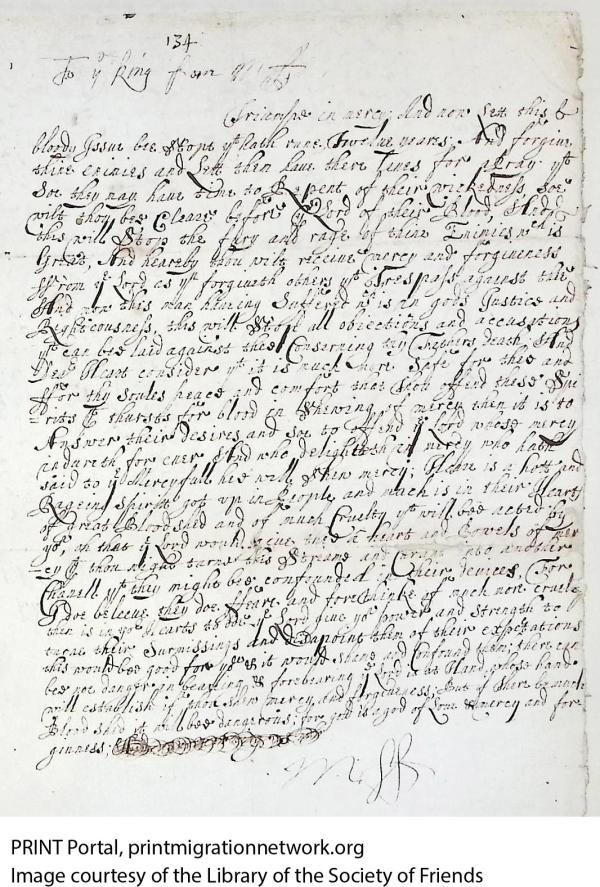 134
To yͤ King from M ff
Triumpe in mercy, And now Lett this &
bloody Issue bee Stopt yᵗ hath rune Twelue yeares; And forgiue
thine Enimies and Lett them have there Liues for a Pray yᵗ
Soe they may haue time to Repent of their wickedness Soe
wilt thou bee Cleare before yͤ Lord of their Blood, And
this will Stop the fury and rage of thine Enimies wᶜʰ is
Great, And hereby thou wilt receiue mercy and forgiueness
ffrom yͤ Lord as yᵘ forgiueth others yᵗ Trespass against thee
And now this man haueing Suffered wᶜʰ is in gods Justice and
Righteousness, this will Stope all obiections and accusations
yᵗ can bee laid against thee Conserning thy ffathers death, And
Dear Heart consider yᵗ it is much more Safe for thee and
ffor thy Soules peace and comfort that thou offend these Spi
=rits yᵗ thursts for blood in Shewing of mercy then it is to
Answer their desires and Soe to offend yͤ Lord whose mercy
indureth for euer And who delighteth in mercy who hath
said to yͤ Mercyfull hee will Shew mercy; There is a hott and
Rageing Spirit got up in People and much is in their Hearts
of great Bloodshed and of much Cruelty yᵗ will bee acted by
yᵘ, oh that yͤ Lord would giue thee a heart and Bowels of mer
=cy yᵗ thou might turne this Streame and into another
Chanell yᵗ they might be confounded in their deuices, For
I doe beleeue they doe ffeare and forethinke of much more cruelty
then is in yoʳ Hearts to doe yͤ Lord giue yᵘ power and strength to
turne their Surmissings and Disapoint them of their expectations
this would bee good for yᵘ & it would shame and Confound them; there can
bee not danger in beareing & forebearing yͤ Lord is at Hand, whose hand
will establish if thou shew mercy and forgiueness; But if there be much
Blood shed it will bee dangerous; for god is a god of Loue & mercy and for
giuness;
M ff
PRINT Portal, printmigrationnetwork.org
Image courtesy of the Library of the Society of Friends